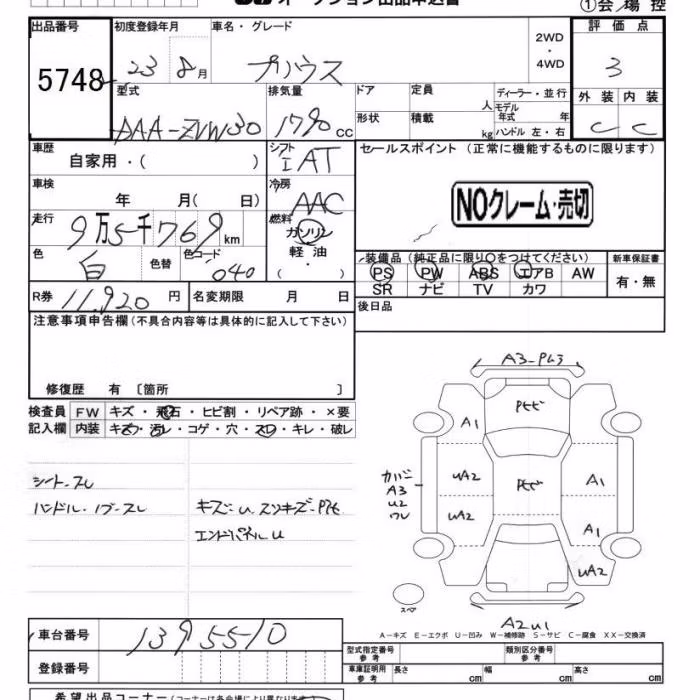 ①会/場 控
出品番号 初度登録年月 車名・グレード 2WD・4WD 評価点
5748 23 8月 プリウス 3
型式 排気量 ドア 定員 人 ディーラー・並行 外装 内装
DAA-ZVW30 1790 CC 形状 積載 kg モデル年式 年 C C
ハンドル 左・右
車歴 自家用・( ) シフト I AT セールスポイント (正常に機能するものに限ります)
車検 年 月( 日) 冷房 AAC NOクレーム・売切
走行 9万5千769km 燃料 ガソリン
色 白 色替 色コード 040 軽油
・
( )
装備品 (純正品に限り○をつけてください) 新車保証書
PS PW ABS エアB AW 有・無
SR ナビ TV カワ
R券 11,920円 名変期限 月 日 後日品
注意事項申告欄 (不具合内容等は具体的に記入して下さい)
修復歴 有 〔箇所 〕
検査員 FW キズ・飛石・ヒビ割・リペア跡・×要
記入欄 内装 キズ・汚レ・コゲ・穴・スレ・キレ・破レ
シートスレ
ハンドル・ノブースレ
エンドパネルU
A1
UA2 A1
A3
U2
UA2 A1
UA2
スペア
A2U1
A－キズ E－エクボ U－凹み W－補修跡 S－サビ C－腐食 XX－交換済
車台番号 1395510
登録番号
型式指定番号 参考 類別区分番号 参考
車庫証明用 参考 長さ cm 幅 cm 高さ cm
希望出品コーナー